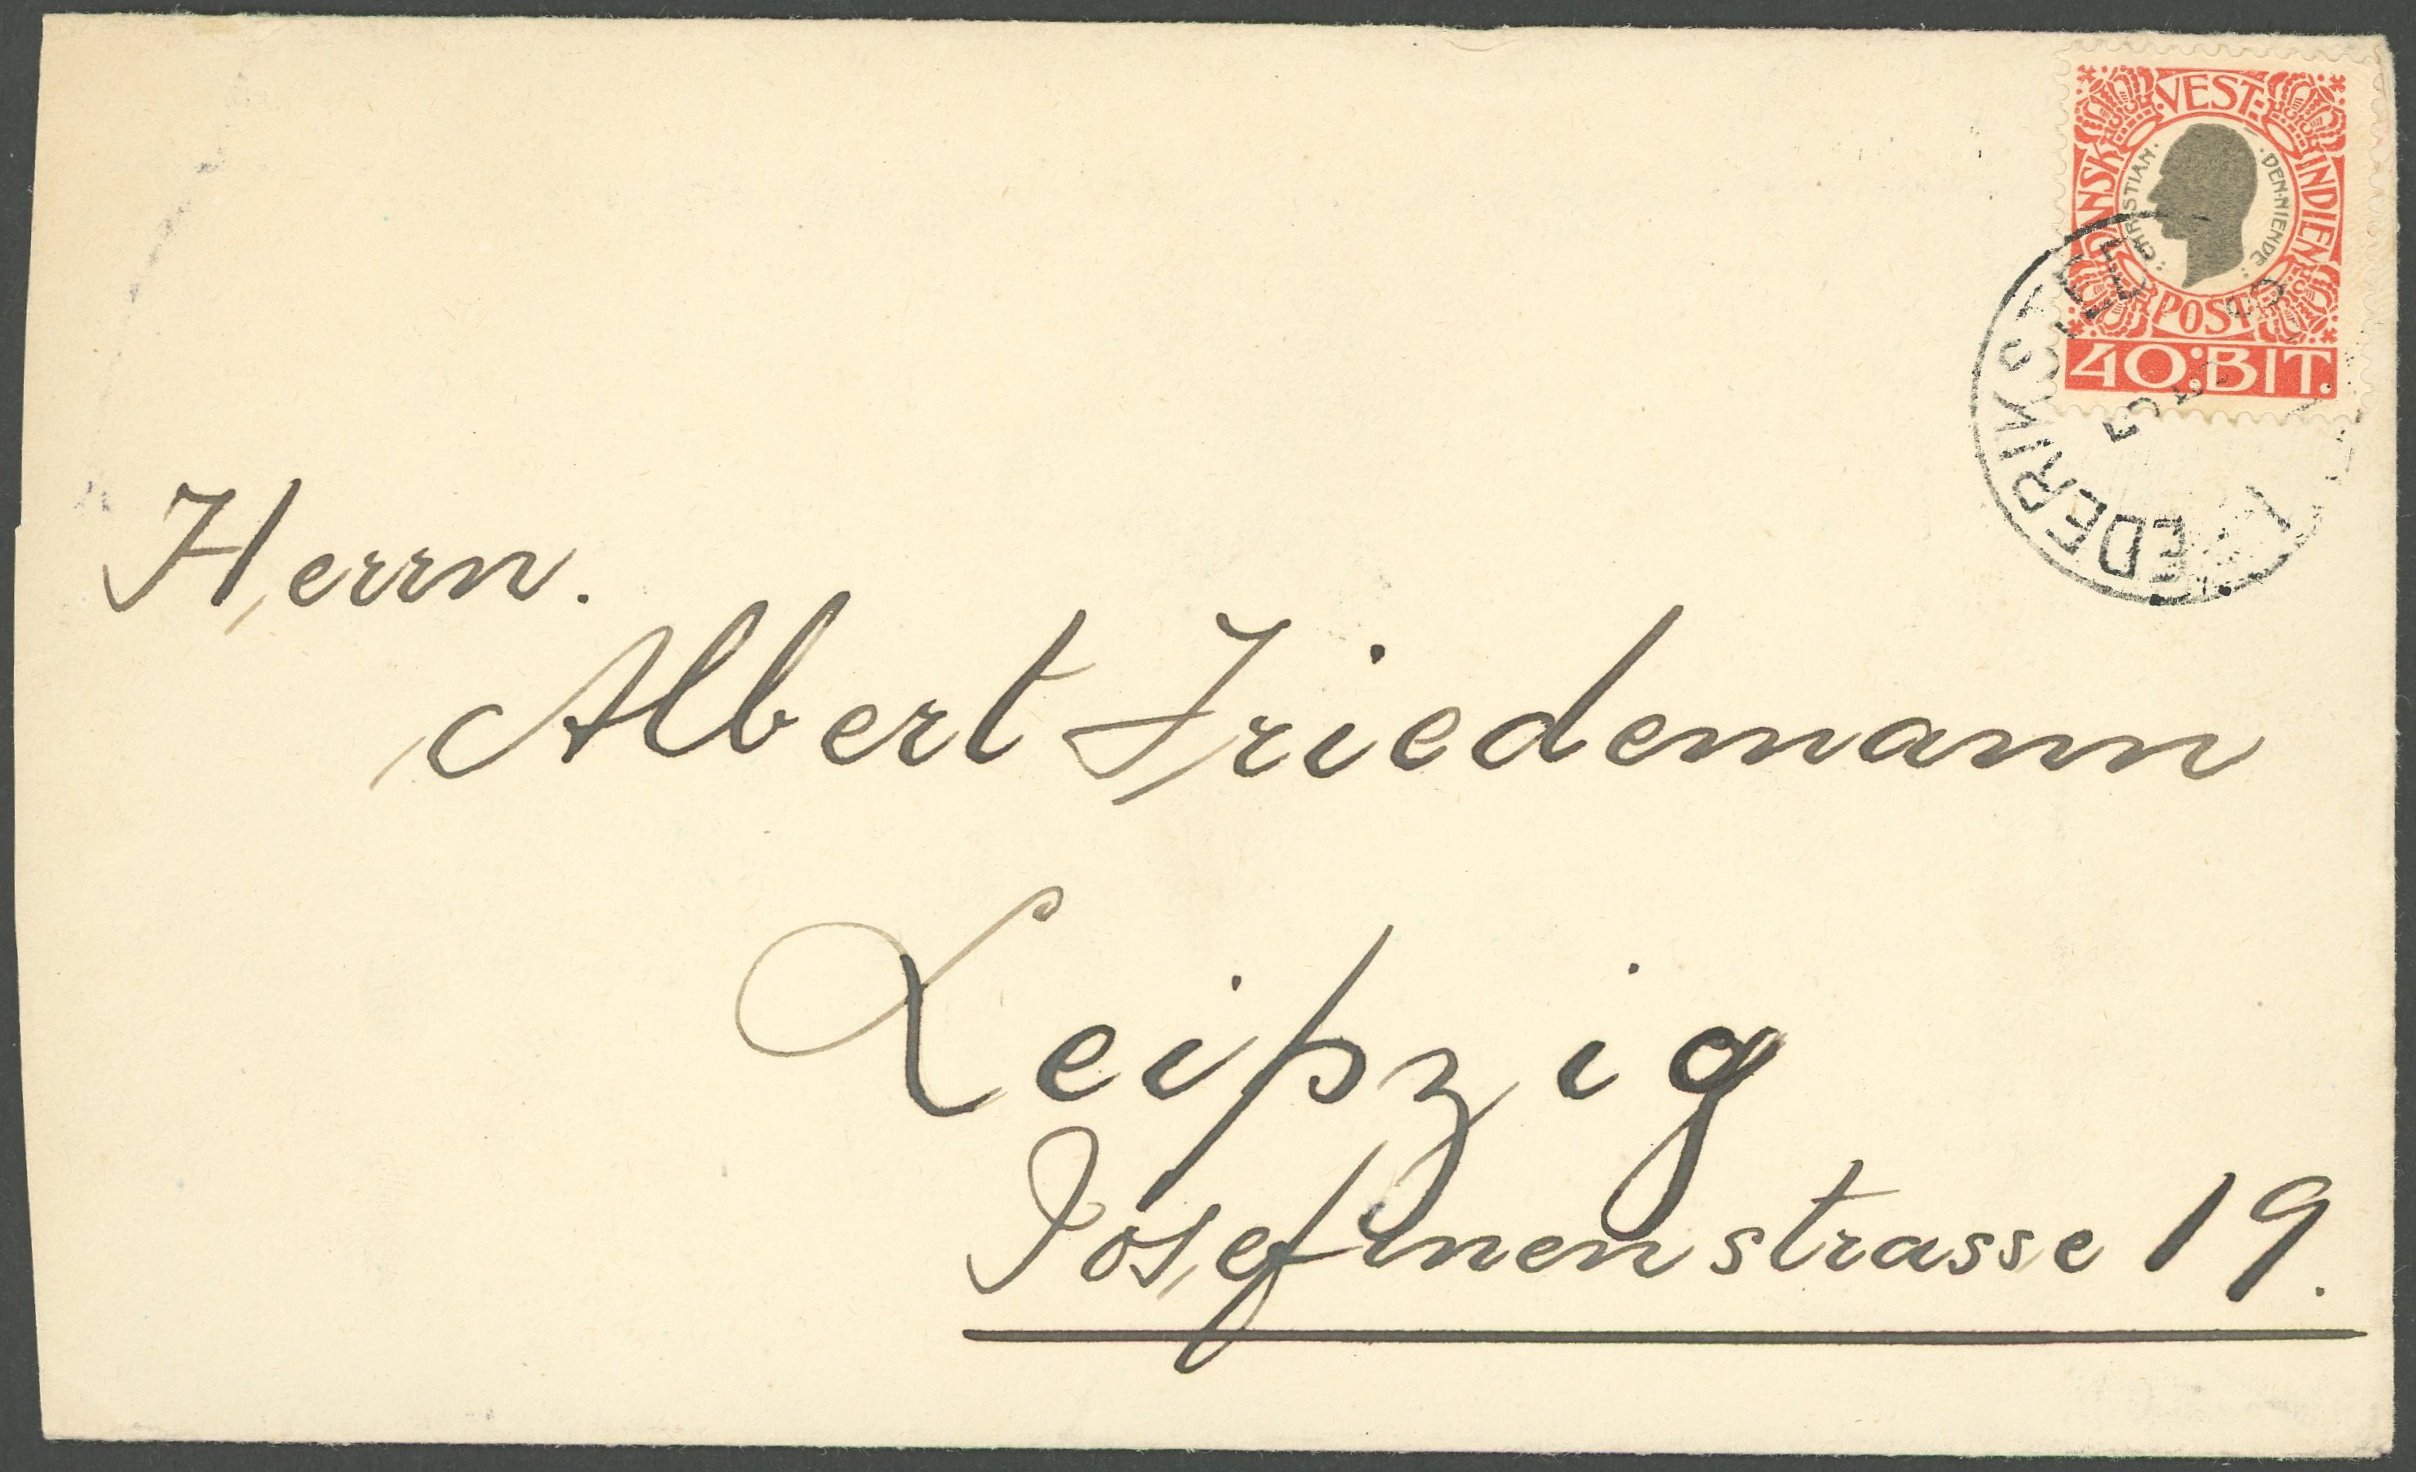 DANSK VEST-INDIEN
CHRISTIAN DEN NIENDE
POST
40 BIT.
EDERIKSTED
Herrn.
Albert Friedemann
Leipzig
Josefinenstrasse 19.